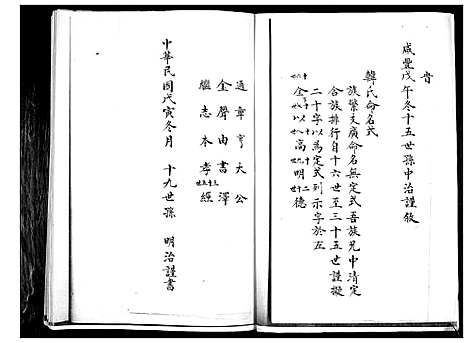 昔
咸豐戊午冬十五世孫中治謹敘
韓氏命名式
族繁支廣命名無定式吾族兄中清定
合族排行自十六世至三十五世謹擬
二十字以為定式列示字於左
高明德
通章亨大公
金聲由書澤
繼志本孝經
中華民國戊寅冬月 十九世孫 明治謹書